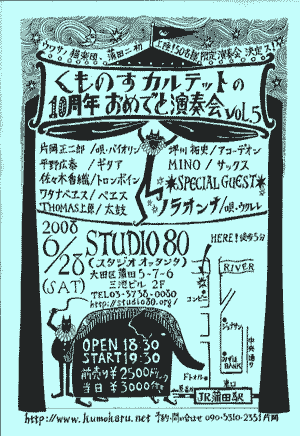 ウワサノ猫楽団、蒲田ニ初
上陸!50名様限定演奏会決定ス!!
くものすカルテットの
10周年おめでと演奏会 Vol.5
片岡正二郎/唄・バイオリン
平野広泰/ギタア
佐々木香織/トロンボイン
ワタナベエス/ベエス
THOMAS上原/太鼓
坪川拓史/アコーデオン
MINO/サックス
SPECIAL GUEST
ソラオンナ/唄・ウクレレ
2008
6/28
(SAT)
STUDIO80
(スタジオオッタンタ)
大田区蒲田5-7-6
三池ビル 2F
TEL03-3738-0030
http://studio80.org/
HERE!徒歩5分
RIVER
コンビニ
みずほ
BANK
中央通り
ドトール
東口
JR蒲田駅
OPEN 18:30
START 19:30
前売り¥2500ドリンク
当日¥3000付キ
http://www.kumokaru.net 予約・問い合せ 090-5310-2331 片岡